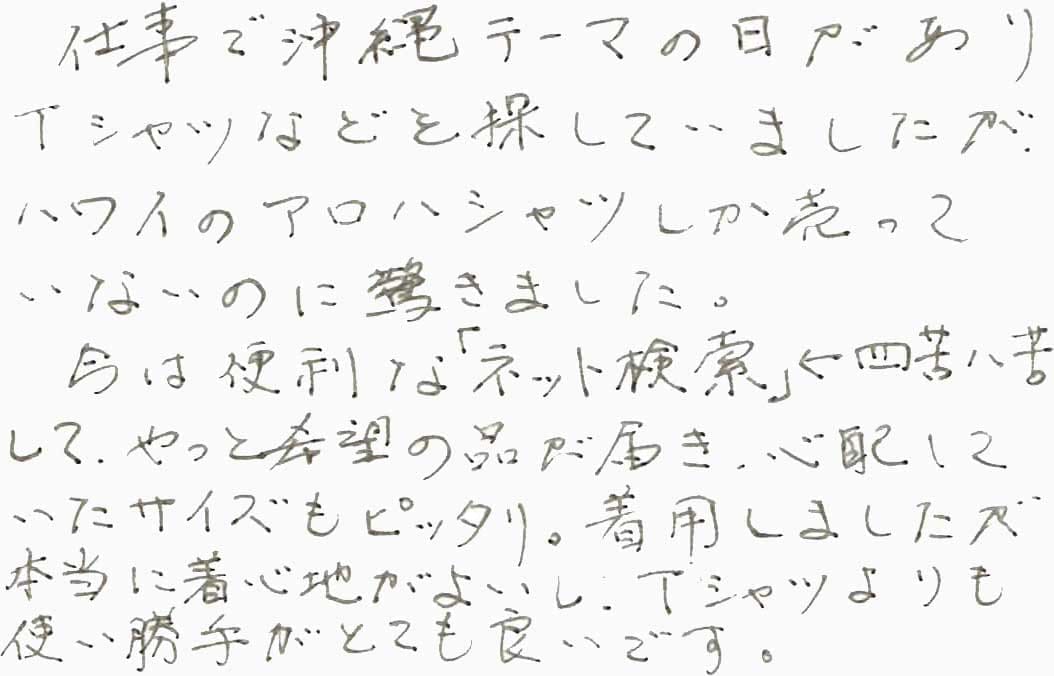 仕事で沖縄テーマの日があり
Tシャツなどを探していましたが、
ハワイのアロハシャツしか売って
いないのに驚きました。
今は便利な「ネット検索」←四苦八苦
して、やっと希望の品が届き、心配して
いたサイズもピッタリ。着用しましたが
本当に着心地がよいし、Tシャツよりも
使い勝手がとても良いです。